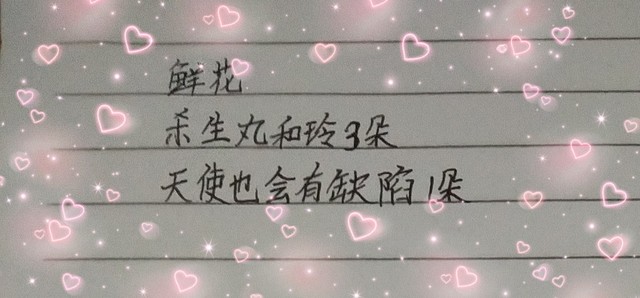 鲜花
杀生丸和玲3朵
天使也会有缺陷1朵